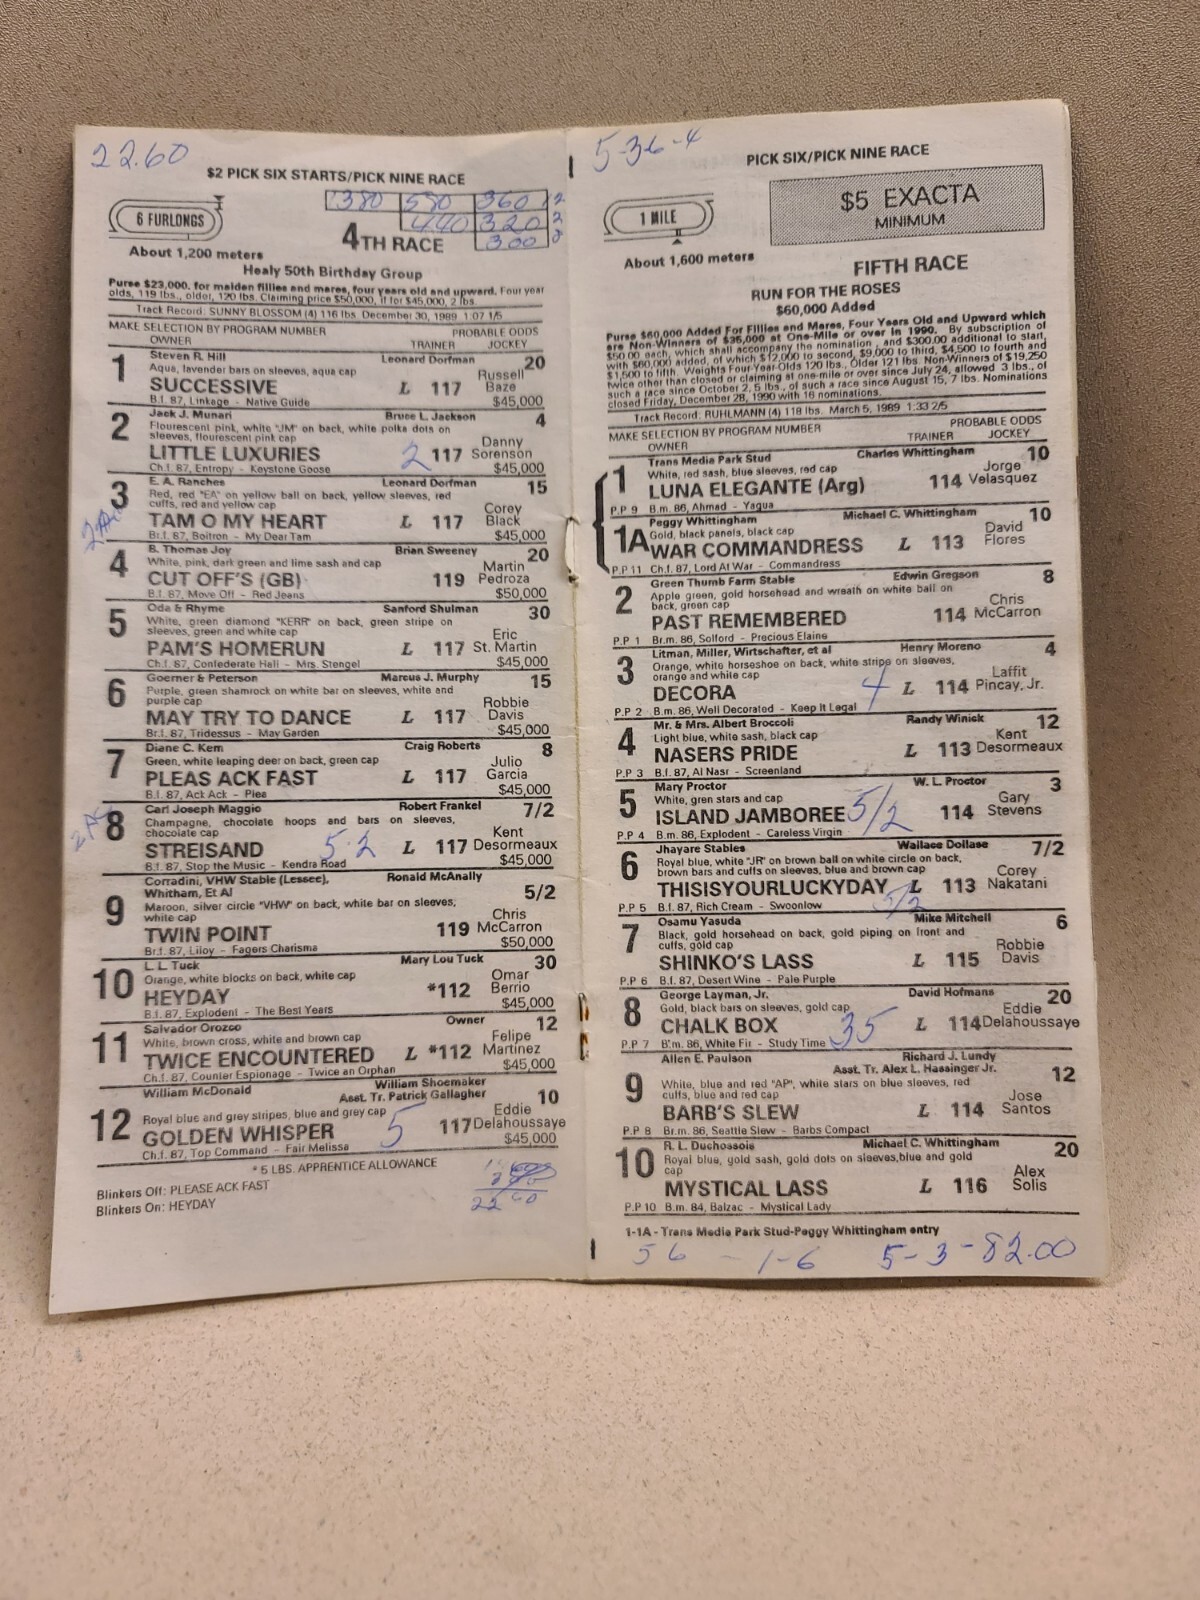 22.60
$2 PICK SIX STARTS/PICK NINE RACE
380 580 360 2
440 320 2
300 8
6 FURLONGS
4TH RACE
About 1,200 meters
Healy 50th Birthday Group
Purse $23,000. for maiden fillies and mares, four years old and upward. Four year
olds, 119 lbs., older, 120 lbs. Claiming price $50,000, if for $45,000, 2 lbs.
Track Record: SUNNY BLOSSOM (4) 116 lbs. December 30, 1989 1:07 1/5
MAKE SELECTION BY PROGRAM NUMBER PROBABLE ODDS
OWNER TRAINER JOCKEY
1 Steven R. Hill Leonard Dorfman 20
Aqua, lavender bars on sleeves, aqua cap Russell
SUCCESSIVE L 117 Baze
B.f. 87, Linkage - Native Guide $45,000
2 Jack J. Munari Bruce L. Jackson 4
Flourescent pink, white "JM" on back, white polka dots on
sleeves, flourescent pink cap Danny
LITTLE LUXURIES 2 117 Sorenson
Ch.f. 87, Entropy - Keystone Goose $45,000
3 E. A. Ranches Leonard Dorfman 15
Red, red "EA" on yellow ball on back, yellow sleeves, red
cuffs, red and yellow cap Corey
TAM O MY HEART L 117 Black
Br.f. 87, Boitron - My Dear Tam $45,000
4 B. Thomas Joy Brian Sweeney 20
White, pink, dark green and lime sash and cap Martin
CUT OFF'S (GB) 119 Pedroza
B.f. 87, Move Off - Red Jeans $50,000
5 Oda & Rhyme Sanford Shulman 30
White, green diamond "KERR" on back, green stripe on
sleeves, green and white cap Eric
PAM'S HOMERUN L 117 St. Martin
Ch.f. 87, Confederate Hall - Mrs. Stengel $45,000
6 Goemer & Peterson Marcus J. Murphy 15
Purple, green shamrock on white bar on sleeves, white and
purple cap Robbie
MAY TRY TO DANCE L 117 Davis
Br.f. 87, Tridessus - May Garden $45,000
7 Diane C. Kem Craig Roberts 8
Green, white leaping deer on back, green cap Julio
PLEAS ACK FAST L 117 Garcia
B.f. 87, Ack Ack - Plea $45,000
8 Carl Joseph Maggio Robert Frankel 7/2
Champagne, chocolate hoops and bars on sleeves,
chocolate cap Kent
STREISAND 5-2 L 117 Desormeaux
B.f. 87, Stop the Music - Kendra Road $45,000
9 Corradini, VHW Stable (Lessee), Ronald McAnally
Whitham, Et Al 5/2
Maroon, silver circle "VHW" on back, white bar on sleeves,
white cap Chris
TWIN POINT 119 McCarron
Br.f. 87, Liloy - Fagers Charisma $50,000
10 L. L. Tuck Mary Lou Tuck 30
Orange, white blocks on back, white cap Omar
HEYDAY *112 Berrio
B.f. 87, Explodent - The Best Years $45,000
11 Salvador Orozco Owner 12
White, brown cross, white and brown cap Felipe
TWICE ENCOUNTERED L *112 Martinez
Ch.f. 87, Counter Espionage - Twice an Orphan $45,000
12 William McDonald William Shoemaker
Asst. Tr. Patrick Gallagher 10
Royal blue and grey stripes, blue and grey cap Eddie
GOLDEN WHISPER 5 117 Delahoussaye
Ch.f. 87, Top Command - Fair Melissa $45,000
* 5 LBS. APPRENTICE ALLOWANCE
Blinkers Off: PLEASE ACK FAST
Blinkers On: HEYDAY
22 60
5-36-4
PICK SIX/PICK NINE RACE
$5 EXACTA
MINIMUM
1 MILE
About 1,600 meters
FIFTH RACE
RUN FOR THE ROSES
$60,000 Added
Purse $60,000 Added For Fillies and Mares, Four Years Old and Upward which
are Non-Winners of $35,000 at One-Mile or over in 1990. By subscription of
$50.00 each, which shall accompany the nomination, and $300.00 additional to start,
with $60,000 added, of which $12,000 to second, $9,000 to third, $4,500 to fourth and
$1,500 to fifth. Weights Four-Year-Olds 120 lbs., Older 121 lbs. Non-Winners of $19,250
twice other than closed or claiming at one-mile or over since July 24, allowed 3 lbs., of
such a race since October 2, 5 lbs., of such a race since August 15, 7 lbs. Nominations
closed Friday, December 28, 1990 with 16 nominations.
Track Record: RUHLMANN (4) 118 lbs. March 5, 1989 1:33 2/5
MAKE SELECTION BY PROGRAM NUMBER PROBABLE ODDS
OWNER TRAINER JOCKEY
1 Trans Media Park Stud Charles Whittingham 10
White, red sash, blue sleeves, red cap Jorge
LUNA ELEGANTE (Arg) 114 Velasquez
P.P 9 B.m. 86, Ahmad - Yagua
1A Peggy Whittingham Michael C. Whittingham 10
Gold, black panels, black cap David
WAR COMMANDRESS L 113 Flores
P.P 11 Ch.f. 87, Lord At War - Commandress
2 Green Thumb Farm Stable Edwin Gregson 8
Apple green, gold horsehead and wreath on white ball on
back, green cap Chris
PAST REMEMBERED 114 McCarron
P.P 1 Br.m. 86, Solford - Precious Elaine
3 Litman, Miller, Wirtschafter, et al Henry Moreno 4
Orange, white horseshoe on back, white stripe on sleeves,
orange and white cap Laffit
DECORA 4 L 114 Pincay, Jr.
P.P 2 B.m. 86, Well Decorated - Keep It Legal
4 Mr. & Mrs. Albert Broccoli Randy Winick 12
Light blue, white sash, black cap Kent
NASERS PRIDE L 113 Desormeaux
P.P 3 B.f. 87, Al Nasr - Screenland
5 Mary Proctor W. L. Proctor 3
White, gren stars and cap Gary
ISLAND JAMBOREE 5/2 114 Stevens
P.P 4 B.m. 86, Explodent - Careless Virgin
6 Jhayare Stables Wallace Dollase 7/2
Royal blue, white "JR" on brown ball on white circle on back,
brown bars and cuffs on sleeves, blue and brown cap Corey
THISISYOURLUCKYDAY L 113 Nakatani
P.P 5 B.f. 87, Rich Cream - Swoonlow 5/2
7 Osamu Yasuda Mike Mitchell 6
Black, gold horsehead on back, gold piping on front and
cuffs, gold cap Robbie
SHINKO'S LASS L 115 Davis
P.P 6 B.f. 87, Desert Wine - Pale Purple
8 George Layman, Jr. David Hofmans 20
Gold, black bars on sleeves, gold cap Eddie
CHALK BOX 35 L 114 Delahoussaye
P.P 7 B'm. 86, White Fit - Study Time
9 Allen E. Paulson Richard J. Lundy
Asst. Tr. Alex L. Hassinger Jr. 12
White, blue and red "AP", white stars on blue sleeves, red
cuffs, blue and red cap Jose
BARB'S SLEW L 114 Santos
P.P 8 Bm. 86, Seattle Slew - Barbs Compact
10 R. L. Duchossois Michael C. Whittingham 20
Royal blue, gold sash, gold dots on sleeves,blue and gold
cap Alex
MYSTICAL LASS L 116 Solis
P.P 10 B.m. 84, Balzac - Mystical Lady
1-1A - Trans Media Park Stud-Peggy Whittingham entry
56 - 1-6 5-3-82.00